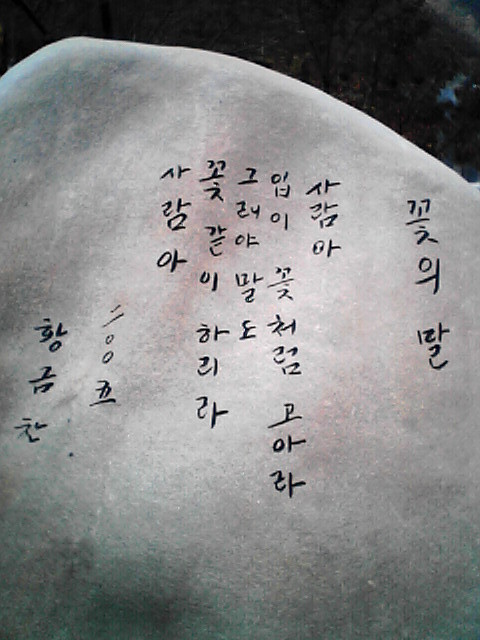 꽃의 말
사람아
입이 꽃처럼 고아라
그래야 말도
꽃같이 하리라
사람아
황금찬